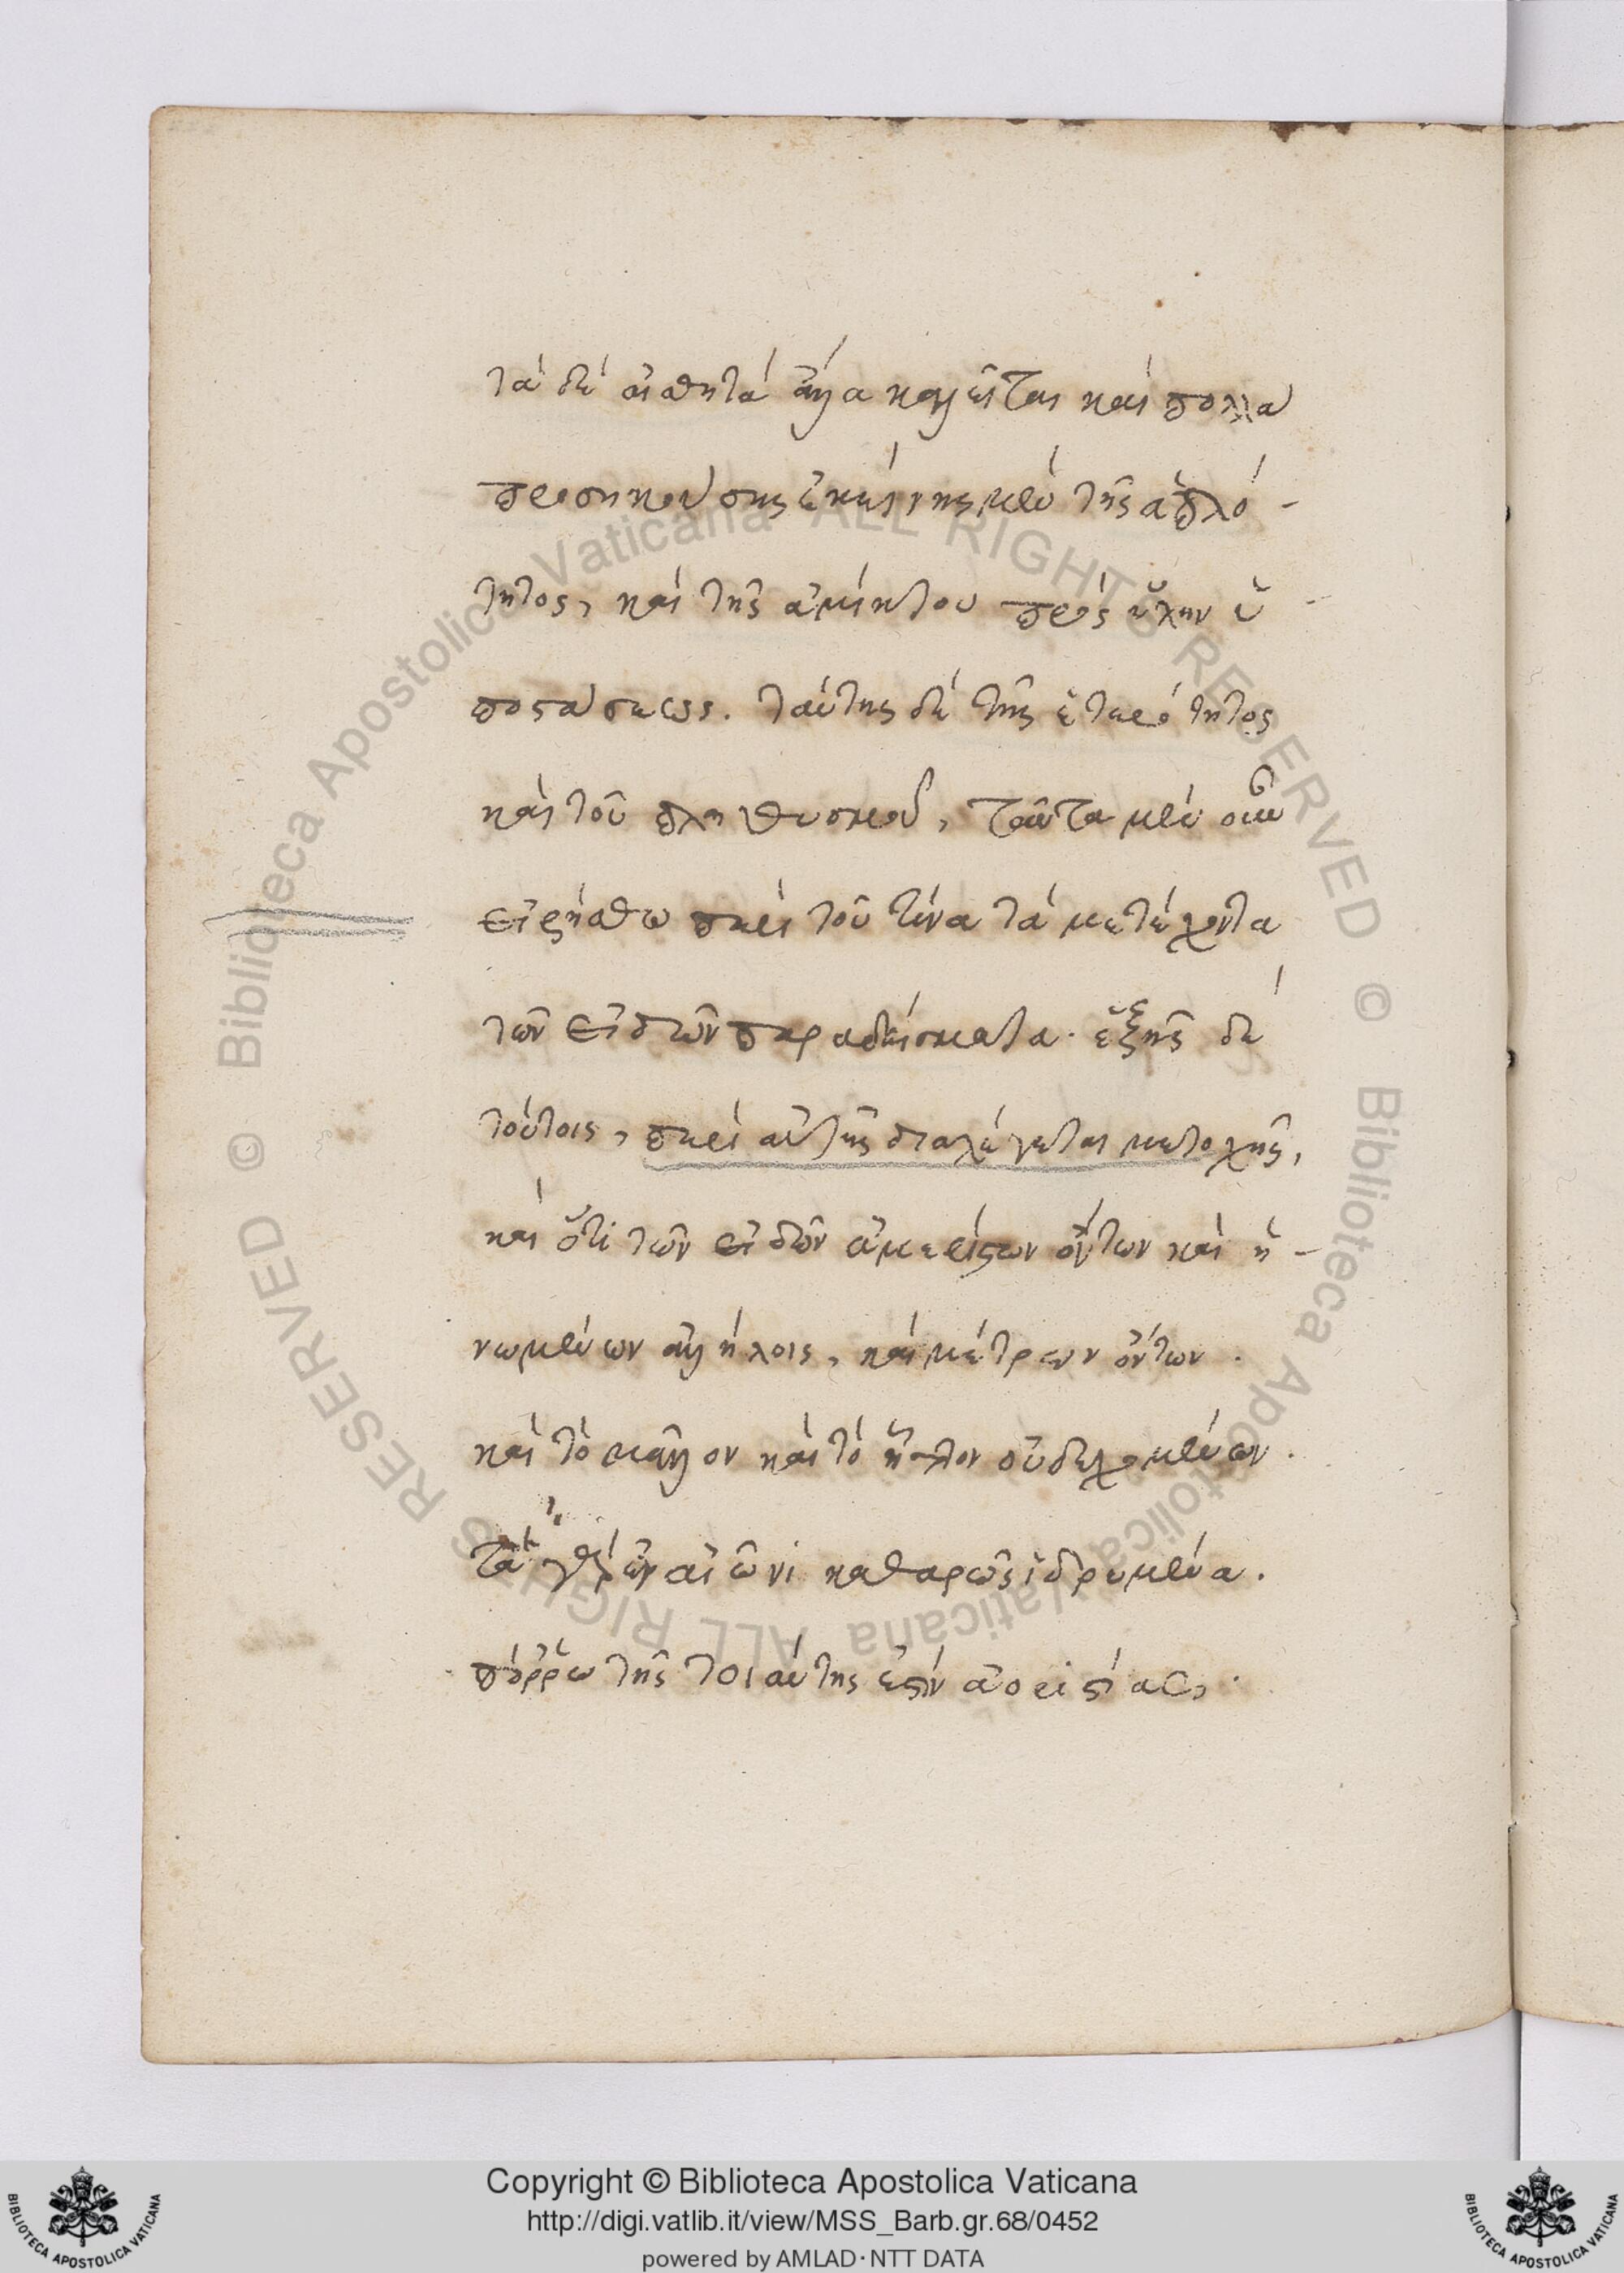 τὰ δὲ αἰσθητὰ ἄλλα καλεῖται καὶ πολλὰ
προσηκούσης ἐκείνης μὲν τῆς ἁπλό-
τητος, καὶ τῆς ἀμίκτου πρὸς ὕλην ὑ-
ποστάσεως. ταύτης δὲ τῆς ἑτερότητος
καὶ τοῦ πληθυσμοῦ, ταῦτα μὲν οὖν
εἰρήσθω περὶ τοῦ τίνα τὰ μετέχοντα
τῶν εἰδῶν παραδείσματα. ἑξῆς δὲ
τούτοις, περὶ αὐτῆς διαλέγεται μετοχῆς,
καὶ ὅτι τῶν εἰδῶν ἀμερίστων ὄντων καὶ ἡ-
νωμένων ἀλλήλοις, καὶ μέτρων ὄντων.
καὶ τὸ μᾶλλον καὶ τὸ ἧττον οὐ δεχομένων.
τὰ γὰρ ἐν αἰῶνι καθαρῶς ἱδρυμένα.
πόῤῥω τῆς τοιαύτης ἐστὶν ἀοριστίας,
Copyright © Biblioteca Apostolica Vaticana
http://digi.vatlib.it/view/MSS_Barb.gr.68/0452
powered by AMLAD·NTT DATA
BIBLIOTECA APOSTOLICA VATICANA
BIBLIOTECA APOSTOLICA VATICANA
© Biblioteca Apostolica Vaticana ALL RIGHTS RESERVED
© Biblioteca Apostolica Vaticana ALL RIGHTS RESERVED